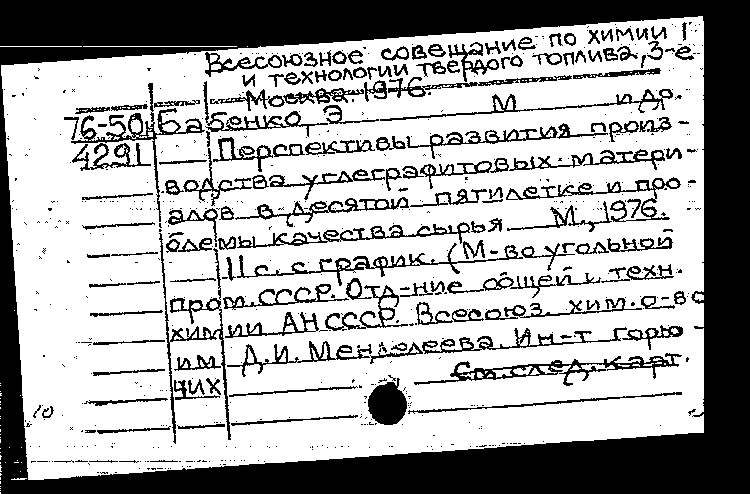 Всесоюзное совещание по химии Г
и технологии твердого топлива, 3-е
Москва. 1976.
76-50 Бабенко, Э М и др.
4291 Перспективы развития произ-
водства углеграфитовых матери-
алов в десятой пятилетке и про-
блемы качества сырья М., 1976.
11 с. с график. (М-во угольной
пром. СССР. Отд-ние общей и техн.
химии АН СССР. Всесоюз. хим. о-во
им Д.И. Менделеева. Ин-т горю-
чих
См. след. карт.
10